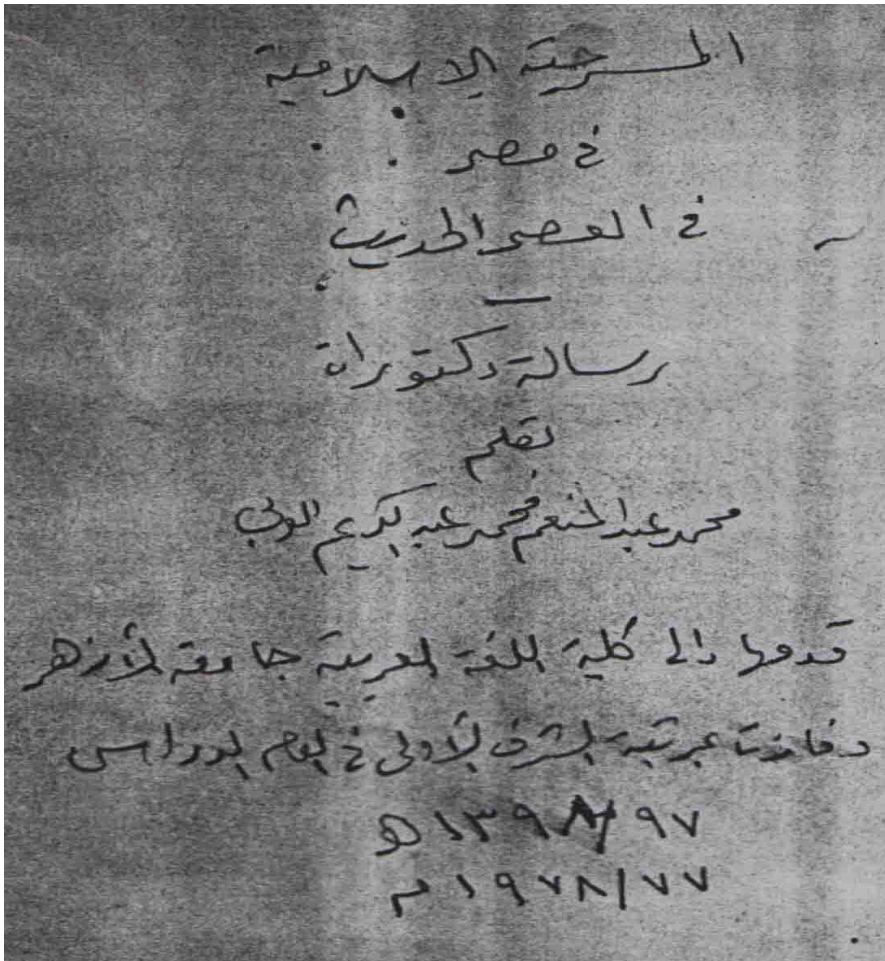 المسرحية الإسلامية
في مصر
في العصر الحديث
رسالة دكتوراة
بقلم
محمد عبد المنعم محمد عبد الكريم العربي
قدمها إلى كلية اللغة العربية جامعة الأزهر
وفازت بمرتبة الشرف الأولى في العام الدراسى
٩٧/١٣٩٨ هـ
٧٧/١٩٧٨ م